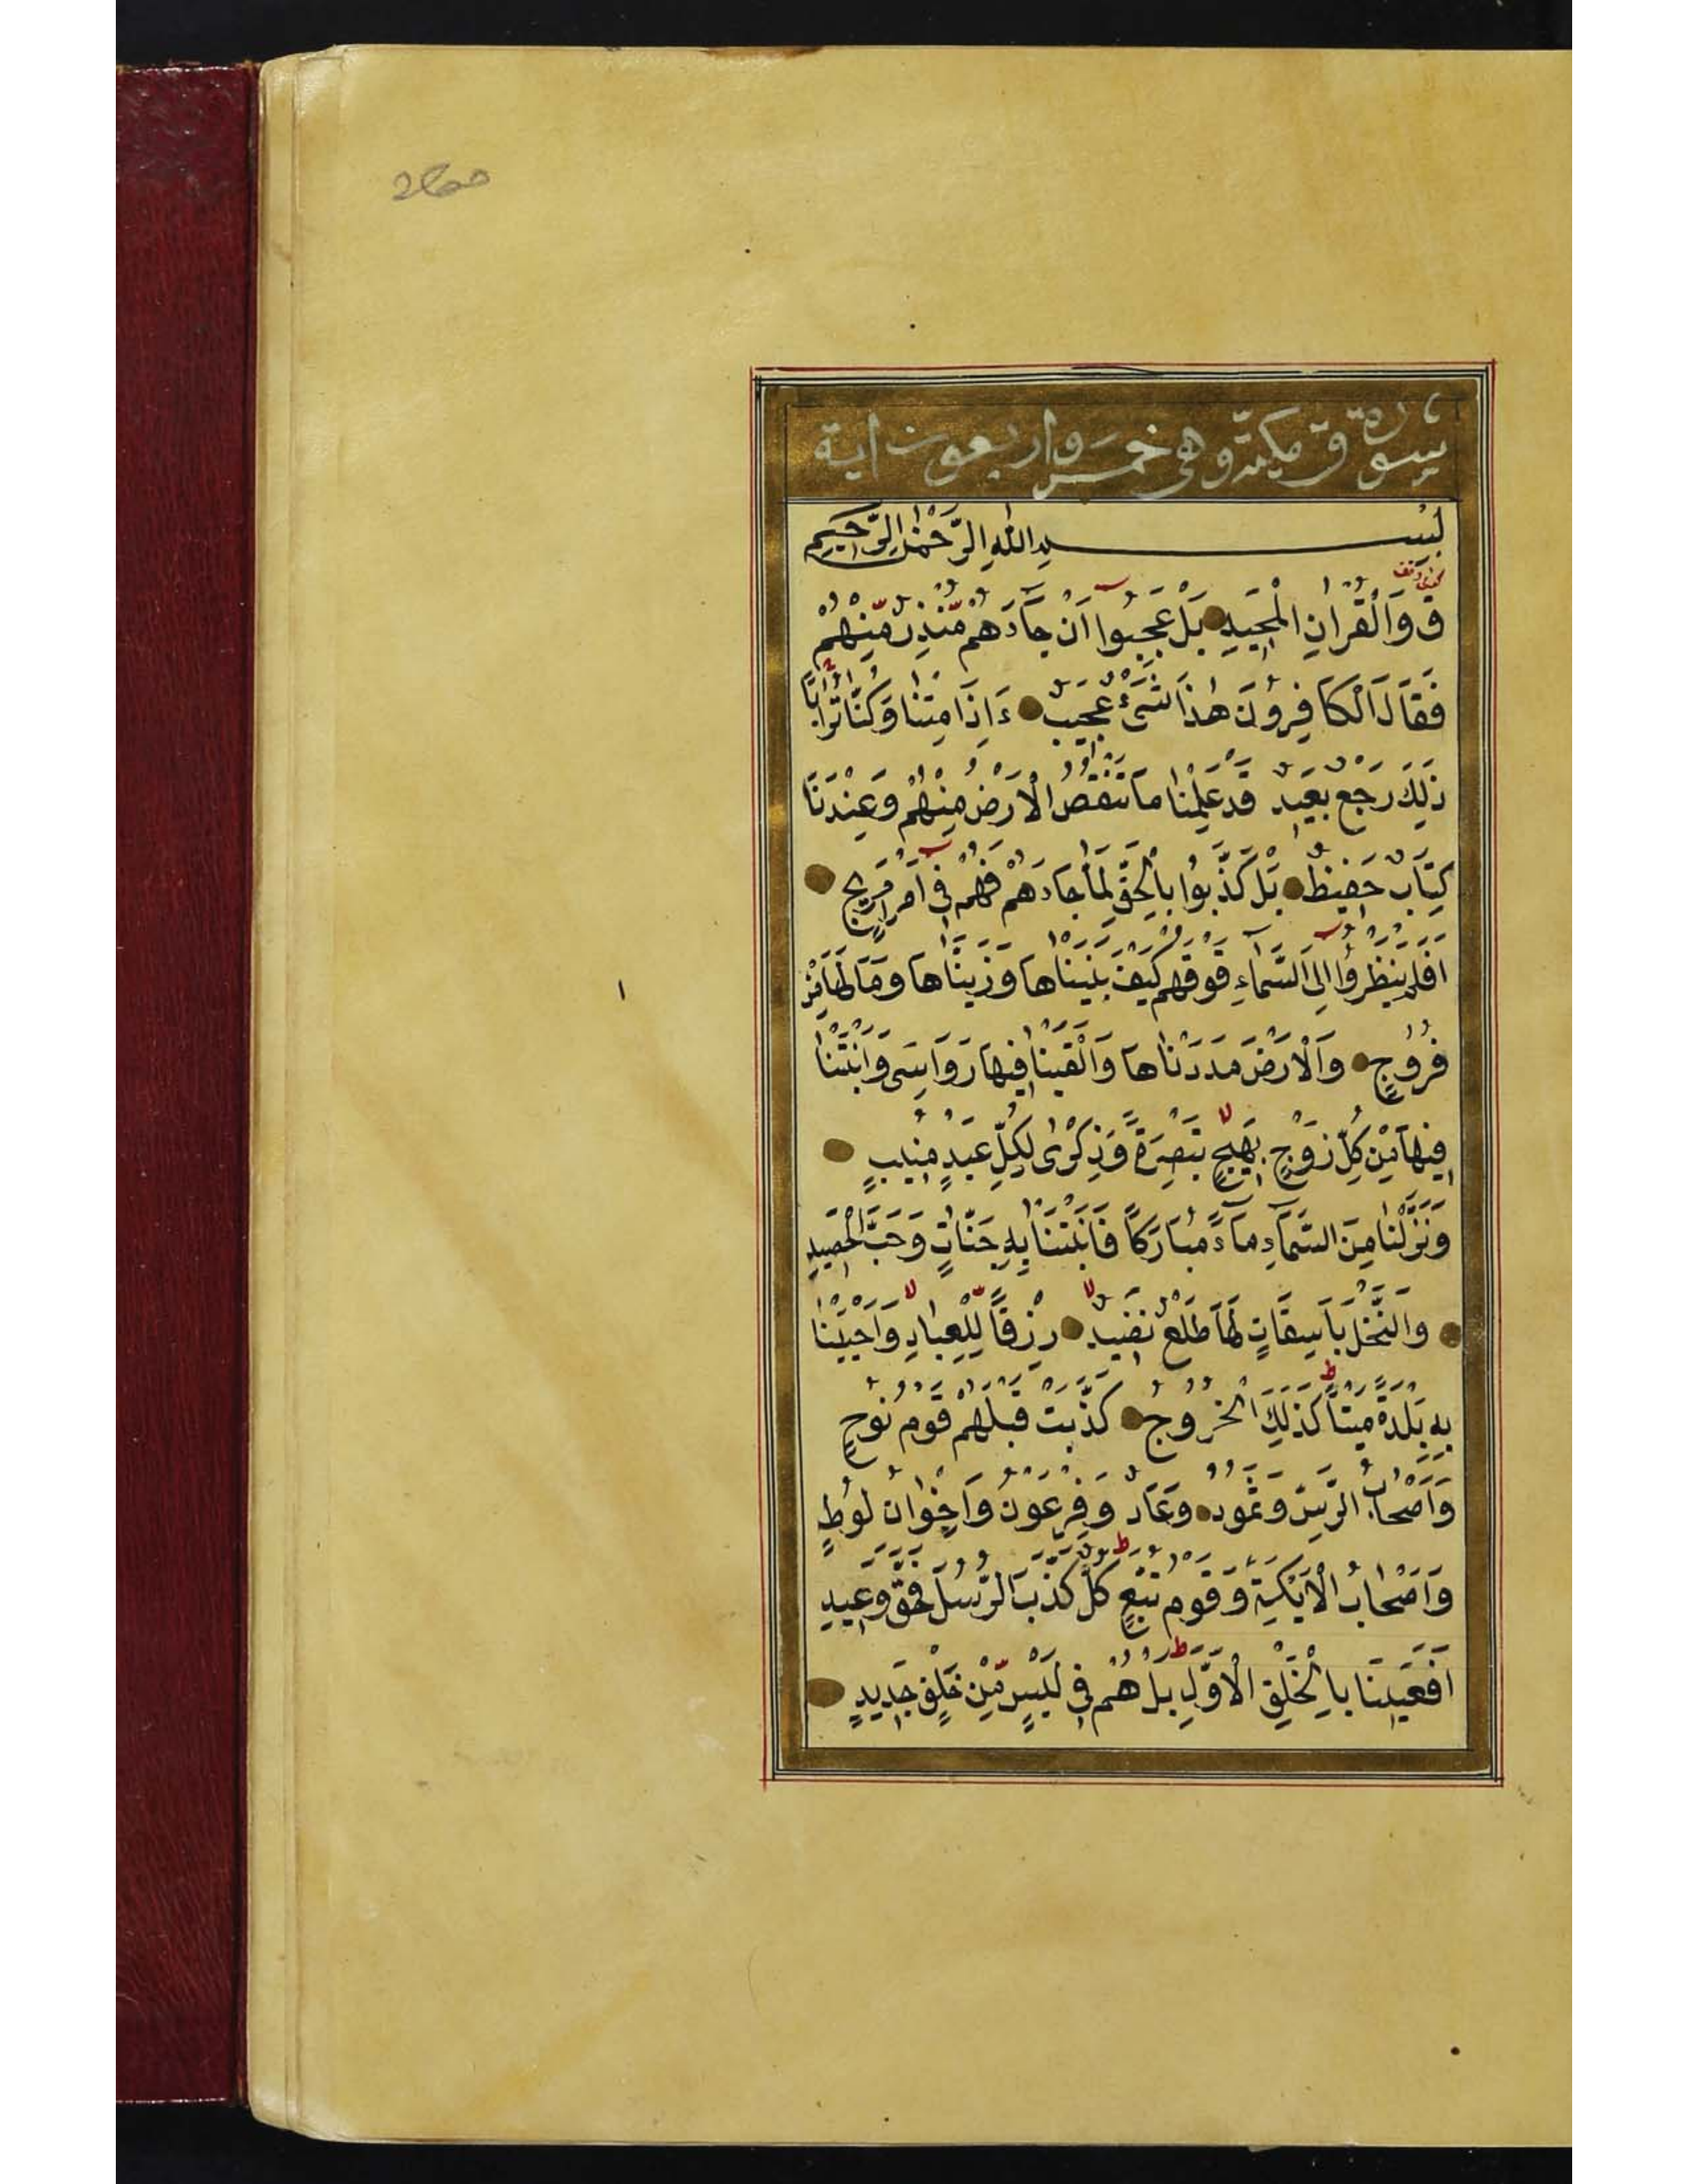 سورة ق مكية وهي خمس واربعون اية
بسم الله الرحمن الرحيم
ق وَالْقُرْاٰنِ الْمَجِيدِ بَلْ عَجِبُوا اَنْ جَاءَهُمْ مُنْذِرٌ مِنْهُمْ
فَقَالَ الْكَافِرُونَ هٰذَا شَيْءٌ عَجِيبٌ ءَاِذَا مِتْنَا وَكُنَّا تُرَابًا
ذٰلِكَ رَجْعٌ بَعِيدٌ قَدْ عَلِمْنَا مَا تَنْقُصُ الْاَرْضُ مِنْهُمْ وَعِنْدَنَا
كِتَابٌ حَفِيظٌ بَلْ كَذَّبُوا بِالْحَقِّ لَمَّا جَاءَهُمْ فَهُمْ فِي اَمْرٍ مَرِيجٍ
اَفَلَمْ يَنْظُرُوا اِلَى السَّمَاءِ فَوْقَهُمْ كَيْفَ بَنَيْنَاهَا وَزَيَّنَّاهَا وَمَا لَهَا مِنْ
فُرُوجٍ وَالْاَرْضَ مَدَدْنَاهَا وَاَلْقَيْنَا فِيهَا رَوَاسِيَ وَاَنْبَتْنَا
فِيهَا مِنْ كُلِّ زَوْجٍ بَهِيجٍ تَبْصِرَةً وَذِكْرٰى لِكُلِّ عَبْدٍ مُنِيبٍ
وَنَزَّلْنَا مِنَ السَّمَاءِ مَاءً مُبَارَكًا فَاَنْبَتْنَا بِهِ جَنَّاتٍ وَحَبَّ الْحَصِيدِ
وَالنَّخْلَ بَاسِقَاتٍ لَهَا طَلْعٌ نَضِيدٌ رِزْقًا لِلْعِبَادِ وَاَحْيَيْنَا
بِهِ بَلْدَةً مَيْتًا كَذٰلِكَ الْخُرُوجُ كَذَّبَتْ قَبْلَهُمْ قَوْمُ نُوحٍ
وَاَصْحَابُ الرَّسِّ وَثَمُودُ وَعَادٌ وَفِرْعَوْنُ وَاِخْوَانُ لُوطٍ
وَاَصْحَابُ الْاَيْكَةِ وَقَوْمُ تُبَّعٍ كُلٌّ كَذَّبَ الرُّسُلَ فَحَقَّ وَعِيدِ
اَفَعَيِينَا بِالْخَلْقِ الْاَوَّلِ بَلْ هُمْ فِي لَبْسٍ مِنْ خَلْقٍ جَدِيدٍ